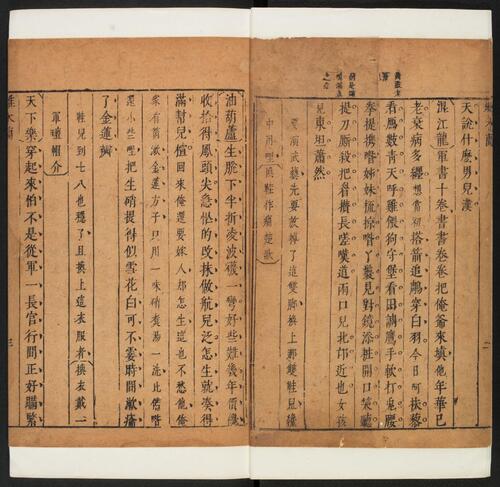 天說什麽男兒漢
混江龍軍書十卷書書卷卷把俺爺來填他年華已
老衰病多纏想當初搭箭追鵰穿白羽今日呵扶藜
看鴈數青天呼雞餵狗守堡看田調鷹手軟打兔腰
拳提攜咱姊妹梳掠咱丫鬟見對鏡添粧開口笑聽
提刀廝殺把眉攢長嗟嘆道兩口兒北邙近也女孩
兒東坦蕭然
要演武藝先要放掉了這雙脚換上那雙鞋兒纔
中用哩換鞋作痛楚狀
油葫蘆生脫下半折凌波襪一彎好些難幾年價纔
收拾得鳳頭尖急忙的改抹做航兒泛怎生就湊得
滿幫兒楦回來俺還要嫁人却怎生這也不愁他俺
家有箇漱金蓮方子只用一味硝煮湯一洗比偌咱
還小些哩把生硝提得似雪花白可不霎時間漱瘪
了金蓮瓣
鞋兒到七八也穩了且換上這衣服者換衣戴一
軍氊帽介
天下樂穿起來怕不是從軍一長官行間正好瞞緊
雌木蘭
三